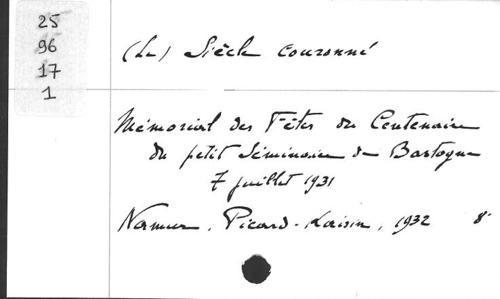 25
96
17
1
(Le) Siècle couronné
Mémorial des Fêtes du Centenaire
du petit Séminaire de Bastogne
7 juillet 1931
Namur, Picard-Kaisin, 1932 8°